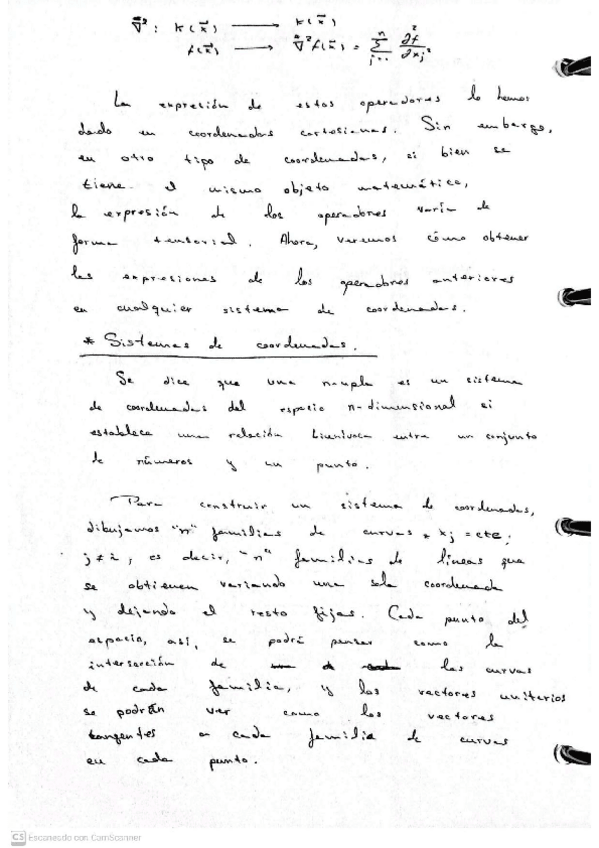 ∇⃗²: K(x⃗) ⟶ K(x⃗)
f(x⃗) ⟶ ∇⃗²f(x⃗) = Σ_{j=1}^{n} ∂²f/∂x_j²
La expresión de estos operadores lo hemos
dado en coordenadas cartesianas. Sin embargo,
en otro tipo de coordenadas, si bien se
tiene el mismo objeto matemático,
la expresión de los operadores varía de
forma tensorial. Ahora, veremos cómo obtener
las expresiones de los operadores anteriores
en cualquier sistema de coordenadas.
* Sistemas de coordenadas.
Se dice que una n-upla es un sistema
de coordenadas del espacio n-dimensional si
establece una relación biunívoca entre un conjunto
de números y un punto.
Para construir un sistema de coordenadas,
dibujamos "n" familias de curvas * x_j = cte.
j ≠ i, es decir, "n" familias de líneas que
se obtienen variando una sola coordenada
y dejando el resto fijas. Cada punto del
espacio, así, se podrá pensar como la
intersección de las curvas
de cada familia, y los vectores unitarios
se podrán ver como los vectores
tangentes a cada familia de curvas
en cada punto.
CS Escaneado con CamScanner